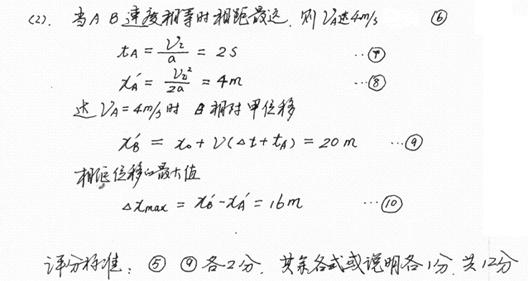 (2). 当A B速度相等时相距最远. 则VA达4m/s ⑥
tA = V2/a = 2s …⑦
xA' = V2²/2a = 4m …⑧
达VA=4m/s时 B相对甲位移
xB' = x0 + V(Δt + tA) = 20m …⑨
相距位移的最大值
Δxmax = xB' - xA' = 16m …⑩
评分标准: ⑤ ⑨各2分. 其余各式或说明各1分. 共12分